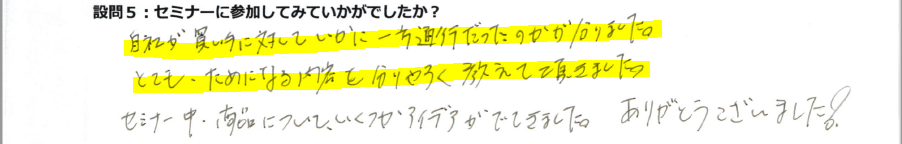 設問５：セミナーに参加してみていかがでしたか？
自社が買い手に対していかに一方通行だったのかが分りました。
とても、ためになる内容を分りやすく教えて頂きました。
セミナー中、商品について、いくつかアイデアがでてきました。 ありがとうございました！